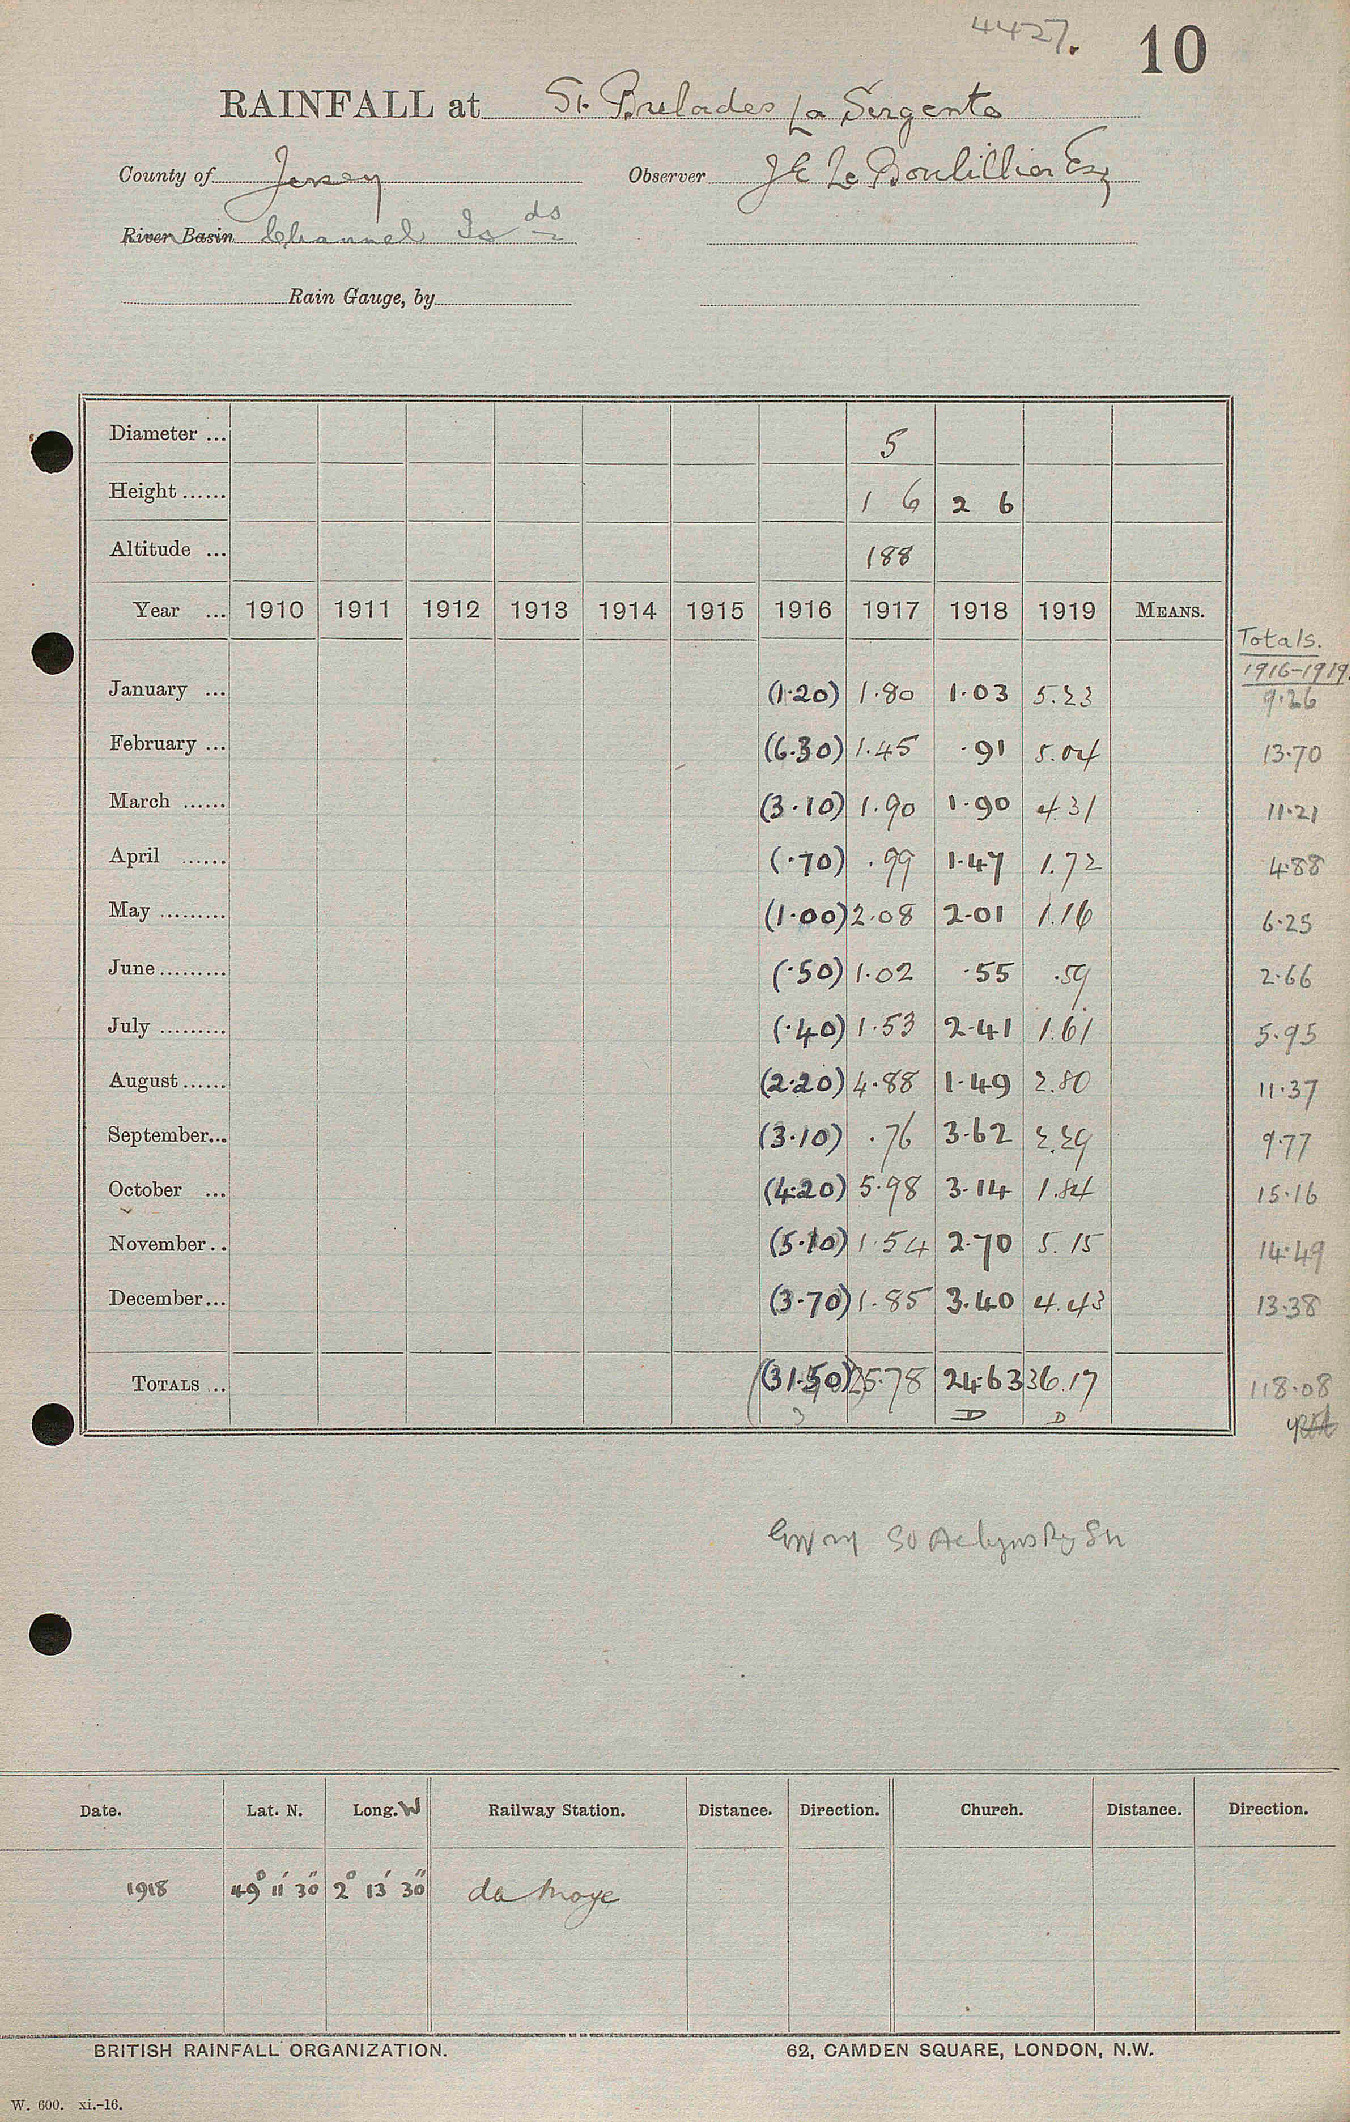 4427. 10
RAINFALL at St. Brelades La Sergente
County of Jersey Observer J E Le Boulillier Esq
River Basin Channel Is ds
Rain Gauge, by
Diameter ... 5
Height ...... 1 6 2 6
Altitude ... 188
Year ... 1910 1911 1912 1913 1914 1915 1916 1917 1918 1919 MEANS.
Totals.
1916-1919.
January ... (1.20) 1.80 1.03 5.23 9.26
February ... (6.30) 1.45 .91 5.04 13.70
March ...... (3.10) 1.90 1.90 4.31 11.21
April ...... (.70) .99 1.47 1.72 4.88
May ......... (1.00) 2.08 2.01 1.16 6.25
June ......... (.50) 1.02 .55 .59 2.66
July ......... (.40) 1.53 2.41 1.61 5.95
August ...... (2.20) 4.88 1.49 2.80 11.37
September... (3.10) .76 3.62 2.29 9.77
October ... (4.20) 5.98 3.14 1.84 15.16
November.. (5.10) 1.54 2.70 5.15 14.49
December... (3.70) 1.85 3.40 4.43 13.38
TOTALS .. (31.50) 25.78 24.63 36.17 118.08
D D
Date. Lat. N. Long. W Railway Station. Distance. Direction. Church. Distance. Direction.
1918 49° 11' 30" 2° 13' 30" La Moye
BRITISH RAINFALL ORGANIZATION. 62, CAMDEN SQUARE, LONDON, N.W.
W. 600. xi.-16.